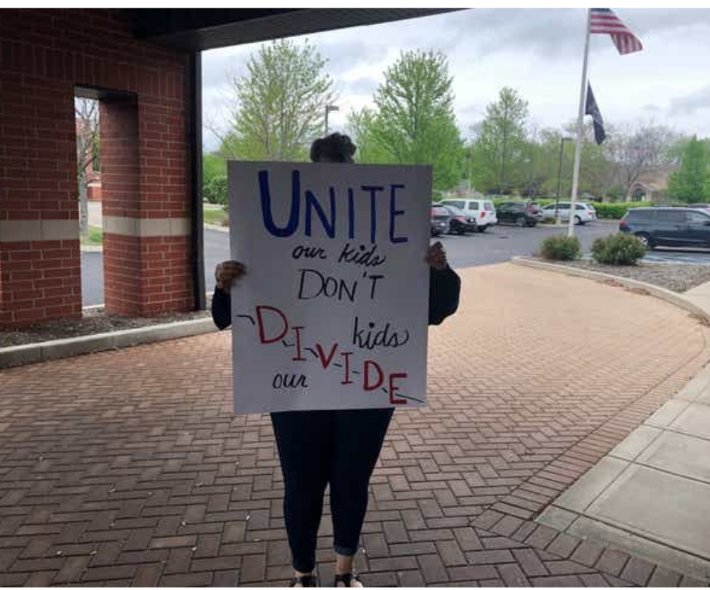 UNITE
our kids
DON'T
DIVIDE
our kids